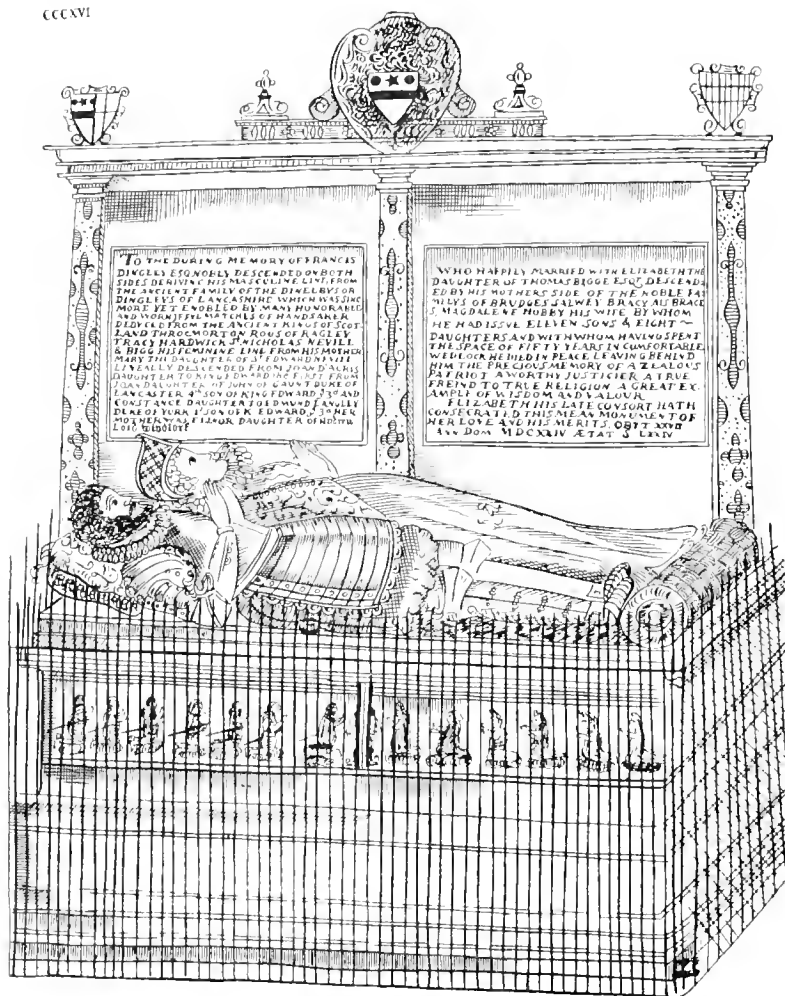 CCCXVI
TO THE DURING MEMORY OF FRANCIS
DINGLEY ESQ NOBLY DESCENDED ON BOTH
SIDES DERIVING HIS MASCULINE LINE FROM
THE ANCIENT FAMILY OF THE DINELEYS OR
DINGLEYS OF LANCASHIRE WHICH WAS SINC
MORE YET ENOBLED BY MANY HONORABLE
AND WORSHIPFVL MATCHES OF HANDSAKER
DEDVCED FROM THE ANCIENT KINGS OF SCOT
LAND THROCMORTON ROUS OF RAGLEY
TRACY HARDWICK Sr NICHOLAS NEVILL
& BIGG HIS FEMININE LINE FROM HIS MOTHER
MARY THE DAUGHTER OF Sr EDWARD NEVILL
LINEALLY DESCENDED FROM JOAN D'ACRIS
DAUGHTER TO KING EDWARD THE FIRST FROM
JOAN DAUGHTER OF JOHN OF GAUNT DUKE OF
LANCASTER 4th SON OF KING EDWARD ye 3d AND
CONSTANCE DAUGHTER TO EDMUND LANGLEY
DUKE OF YORK SON OF K EDWARD ye 3d HER
MOTHER WAS ELINOR DAUGHTER OF
LORD
WHO HAPPILY MARRIED WITH ELIZABETH THE
DAUGHTER OF THOMAS BIGGE ESQr DESCEND
ED BY HIS MOTHERS SIDE OF THE NOBLE FA
MILYS OF BRUDGES SALWEY BRACY AIS BRACE
S, MAGDALENE HOBBY HIS WIFE BY WHOM
HE HAD ISSVE ELEVEN SONS & EIGHT ~
DAUGHTERS AND WITH WHOM HAVING SPENT
THE SPACE OF FIFTY YEARS IN CUMFORTABLE
WEDLOCK HE DIED IN PEACE LEAVING BEHIND
HIM THE PRECIOUS MEMORY OF A ZEALOUS
PATRIOT A WORTHY JUSTICER A TRUE
FREIND TO TRUE RELIGION A GREAT EX
AMPLE OF WISDOM AND VALOUR
ELIZABETH HIS LATE CONSORT HATH
CONSECRATED THIS MEAN MONUMENT OF
HER LOVE AND HIS MERITS. OBIIT XXVII
ANN DOM MDCXXIV ÆTAT S LXXIV